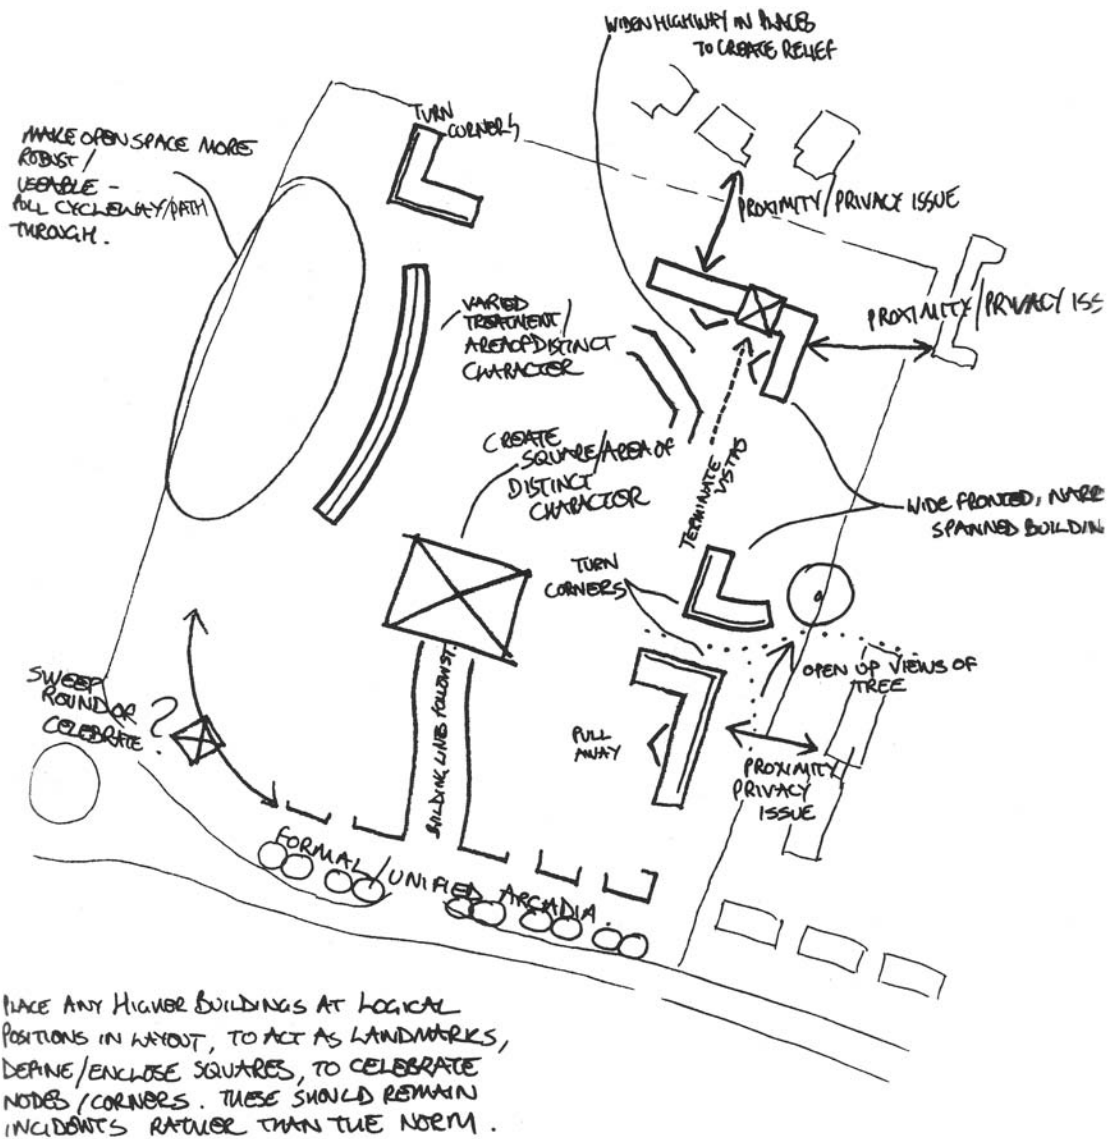 WIDEN HIGHWAY IN PLACES
TO CREATE RELIEF
TURN
CORNERS
MAKE OPEN SPACE MORE
ROBUST /
USEABLE -
PULL CYCLEWAY/PATH
THROUGH.
PROXIMITY/PRIVACY ISSUE
PROXIMITY/PRIVACY ISS
VARIED
TREATMENT/
AREA OF DISTINCT
CHARACTER
CREATE
SQUARE/AREA OF
DISTINCT
CHARACTOR
TERMINATE
VISTAS
WIDE FRONTED, NARR
SPANNED BUILDIN
TURN
CORNERS
OPEN UP VIEWS OF
TREE
SWEEP
ROUND OR
CELEBRATE ?
BUILDING LINES FOLLOW ST.
PULL
AWAY
PROXIMITY
PRIVACY
ISSUE
FORMAL/UNIFIED ARCADIA.
PLACE ANY HIGHER BUILDINGS AT LOGICAL
POSITIONS IN LAYOUT, TO ACT AS LANDMARKS,
DEFINE/ENCLOSE SQUARES, TO CELEBRATE
NODES/CORNERS. THESE SHOULD REMAIN
INCIDENTS RATHER THAN THE NORM.